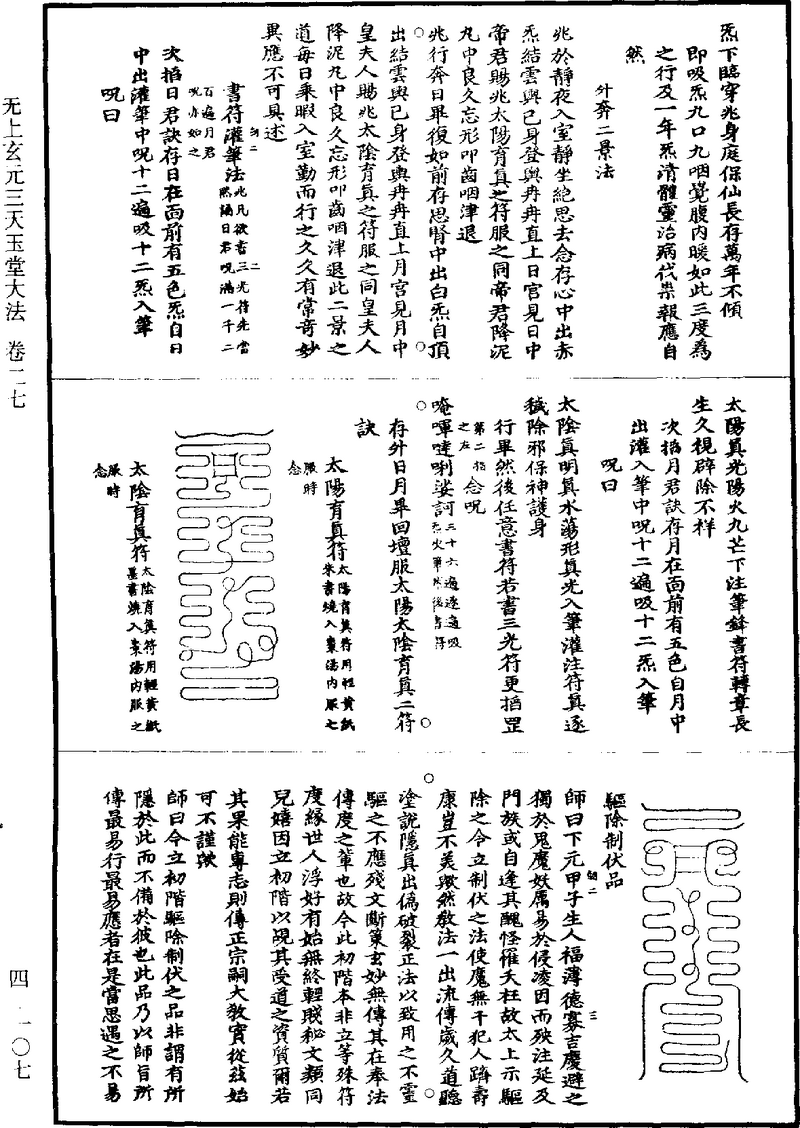 炁下臨穿兆身庭保仙長存萬年不傾
即吸炁九口九咽覺腹内暖如此三度為
之行及一年炁清體靈治病伐祟報應自
然
外奔二景法
兆於靜夜入室靜坐絶思去念存心中出赤
炁結雲與己身登輿冉冉直上日宫見日中
帝君賜兆太陽育真之符服之同帝君降泥
丸中良久忘形叩齒咽津退
兆行奔日畢復如前存思腎中出白炁自頂
出結雲與己身登輿冉冉直上月宫見月中
皇夫人賜兆太陰育真之符服之同皇夫人
降泥丸中良久忘形叩齒咽津退此二景之
道每日乘暇入室勤而行之久久有常奇妙
異應不可具述
書符灌筆法
兆凡欲書三光符先當
炁誦日君呪滿一千二
百遍月君
呪亦如之
次掐日君訣存日在面前有五色炁自日
中出灌筆中呪十二遍吸十二炁入筆
呪曰
太陽真光陽火九芒下注筆鋒書符轉章長
生久視辟除不祥
次掐月君訣存月在面前有五色自月中
出灌入筆中呪十二遍吸十二炁入筆
呪曰
太陰真明真水蕩形真光入筆灌注符真逐
穢除邪保神護身
行畢然後任意書符若書三光符更掐罡
第二指
之左
念呪
唵嗶㗳唎娑訶
三十六遍逐遍吸
存外日月畢回壇服太陽太陰育真二符
訣
太陽育真符
太陽育真符用輕黄紙
朱書燒入棗湯内服七
服時
念
太陰育真符
太陰育真符用輕黄紙
墨書燒入棗湯内服之
服時
念
驅除制伏品
師曰下元甲子生人福薄德寡吉慶避之
獨於鬼魔妖厲易於侵凌因而殃注延及
門族或自逢其醜怪罹夭枉故太上示驅
除之令立制伏之法使魔無干犯人躋壽
康豈不美歟然教法一出流傳歲久道聽
塗説隱真出僞破裂正法以致用之不靈
驅之不應殘文斷策玄妙無傳其在奉法
傳度之輩也故今此初階本非立等殊符
度緣世人浮好有始無終輕賤秘文類同
兒嬉因立初階以覘其受道之資質爾若
其果能專志則傳正宗嗣大教實從兹始
可不謹歟
師曰今立初階驅除制伏之品非謂有所
隱於此而不備於彼也此品乃以師旨所
傳最易行最易應者在是當思遇之不易
无上玄元三天玉堂大法　卷二七
四·一〇七